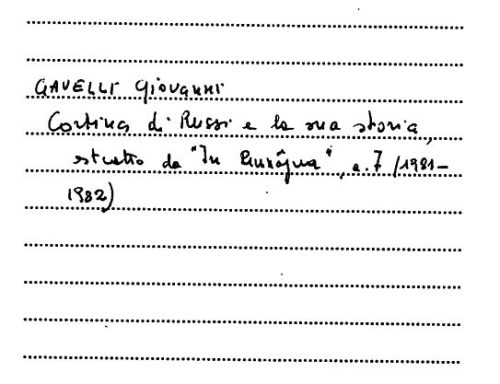 GAVELLI Giovanni
Cortina di Russi e la sua storia,
estratto da "In Rumâgna", a. 7 (1981-
1982)